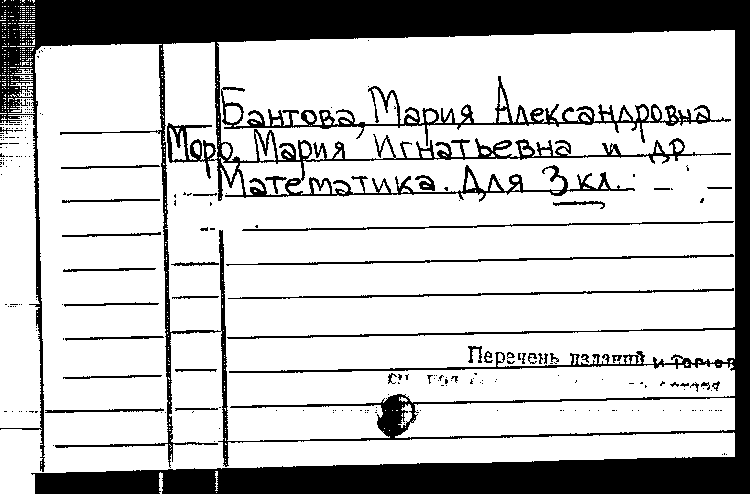 Бантова, Мария Александровна
Моро, Мария Игнатьевна и др.
Математика. Для 3 кл.
Перечень изданий и томов
см. под